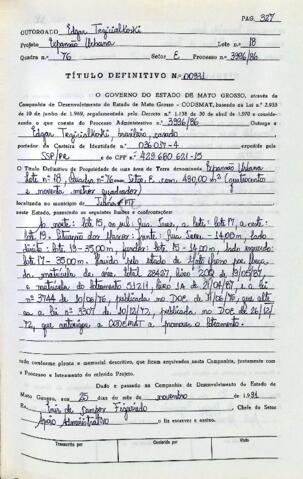 PAG. 327
OUTORGADO Edgar Trzcialkoski
Projeto Expansão Urbana Lote n.º 18
Quadra n.º 76 Setor E Processo n.º 3996/86
TÍTULO DEFINITIVO N.º 00931
O GOVERNO DO ESTADO DE MATO GROSSO, através da
Companhia de Desenvolvimento do Estado de Mato Grosso - CODEMAT, baseado na Lei n.º 2.933
10 de junho de 1969, regulamentada pelo Decreto n.º 1.138 de 30 de abril de 1970 e conside-
rando o que consta do Processo Administrativo n.º 3996/86 Outorga a
Edgar Trzcialkoski, brasileiro, casado
portador da Carteira de Identidade n.º 036.057-4 expedida pela
SSP/PR e do CPF n.º 429.680.621-15
o Título Definitivo de Propriedade de uma área de Terra denominada Expansão Urbana
Lote n.º 18, Quadra n.º 76 Setor E com 490,00 m² (quatrocentos
e noventa metros quadrados)
localizada no município de Juína MT
neste Estado, passando os seguintes limites e confrontações:
ao norte: lote 15, ao sul: Rua, a leste: lote 17, a oeste:
lote 19. frente: 14,00m, lado
direito: lote 19 - 35,00m, fundos: lote 15 - 14,00m, lado esquerdo:
lote 17 - 35.00m. Havido pelo Estado de Mato Grosso por
da matrícula de área total 28427 livro
e matrícula do loteamento livro de 21/04/87, e a lei
n.º 3744 de 10/06/76, publicada no DOE de 11/06/76, que alte
ra a lei n.º 3307 de 10/12/72, publicada no DOE de 26/12/
72, que autoriza a CODEMAT a promover o loteamento.
tudo conforme planta e memorial descritivo, que ficam arquivados nesta Companhia, juntamente com
o Processo e loteamento do referido Projeto.
Dado e passado na Companhia de Desenvolvimento do Estado de
Mato Grosso, aos 25 dias do mês de novembro de 1991
Eu de Campos Figueiredo Chefe do Setor
Apoio Administrativo fiz escrever e assino.
Transcrito por
Conferido por
Visto